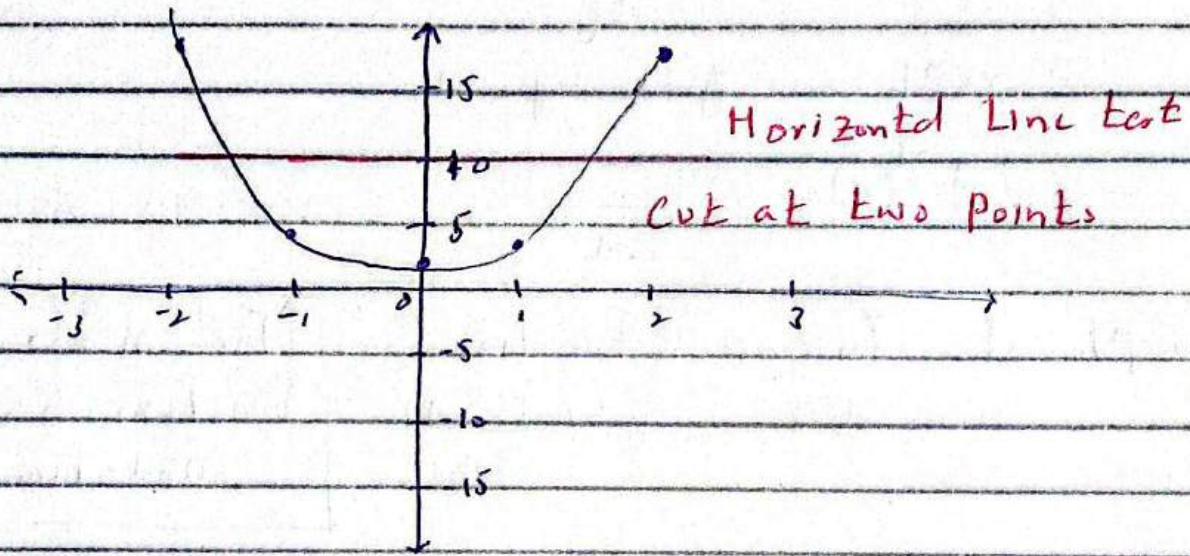 15
Horizontal Line test
10
Cut at two points
5
-3 -2 -1 0 1 2 3
-5
-10
-15